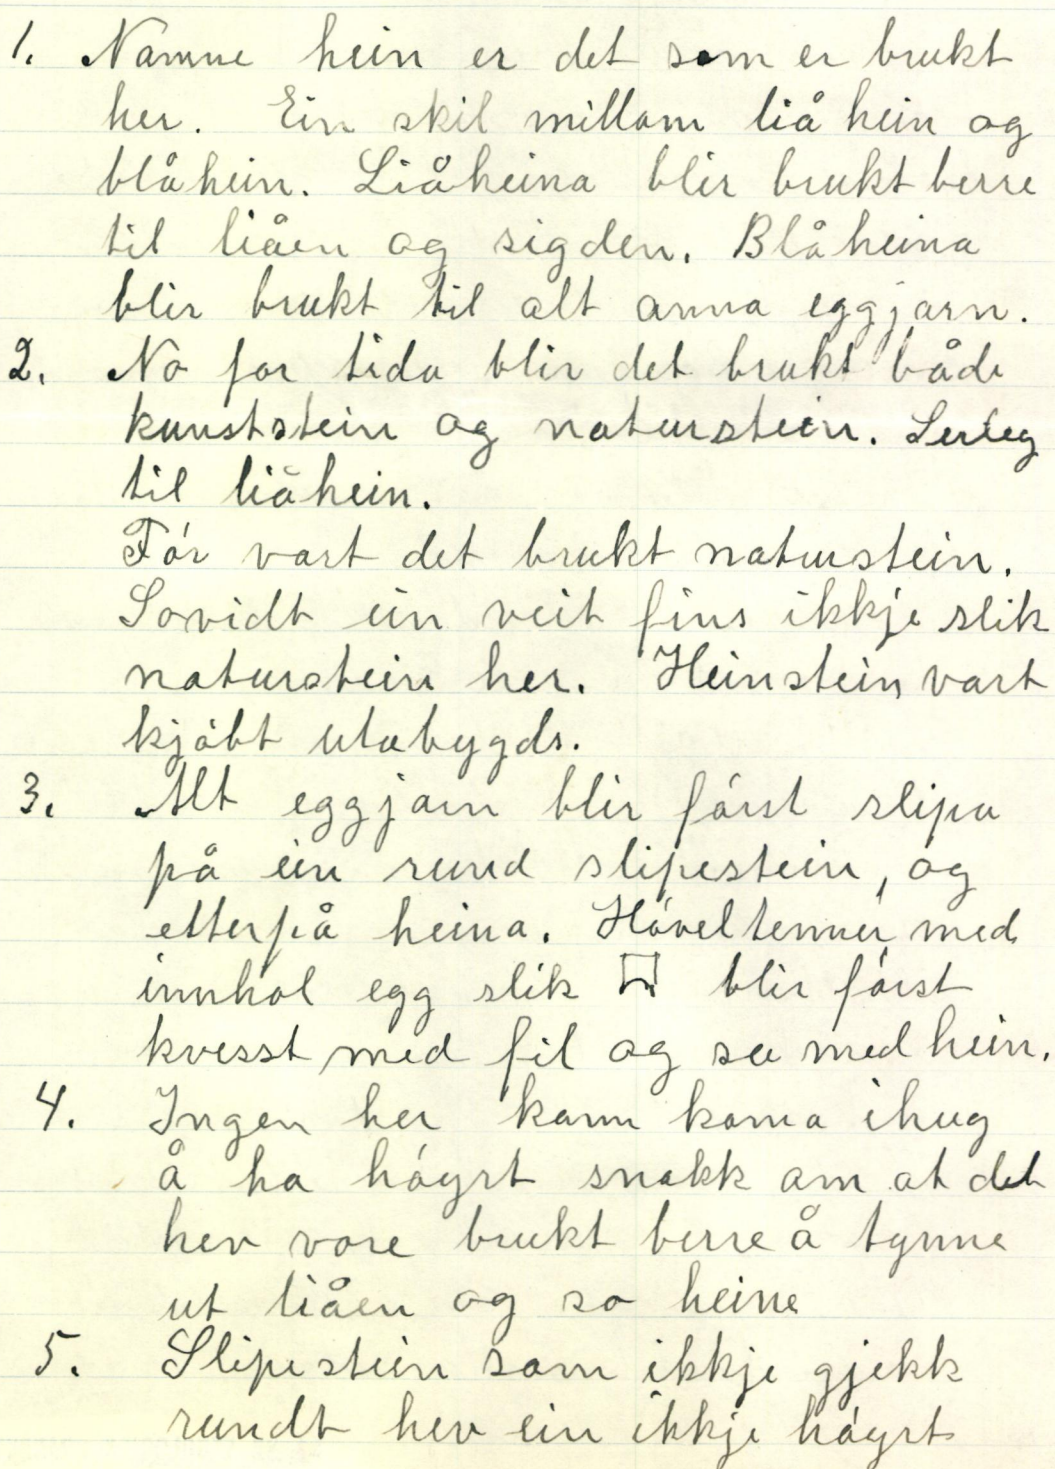 1. Namne hein er det som er brukt
her. Ein skil millom liå hein og
blåhein. Liåheina blir brukt berre
til liåen og sigden. Blåheina
blir brukt til alt anna eggjarn.
2. No for tida blir det brukt både
kunststein og naturstein. Serleg
til liåhein.
Før vart det brukt naturstein.
Sovidt ein veit fins ikkje slik
naturstein her. Heinstein vart
kjøbt utabygds.
3. Alt eggjarn blir først slipa
på ein rund slipestein, og
etterpå heina. Høveltenner med
innhol egg slik blir først
kvesst med fil og so med hein.
4. Ingen her kann koma ihug
å ha høyrt snakk om at det
hev vore brukt berre å tynne
ut liåen og so heine
5. Slipestein som ikkje gjekk
rundt hev ein ikkje høyrt